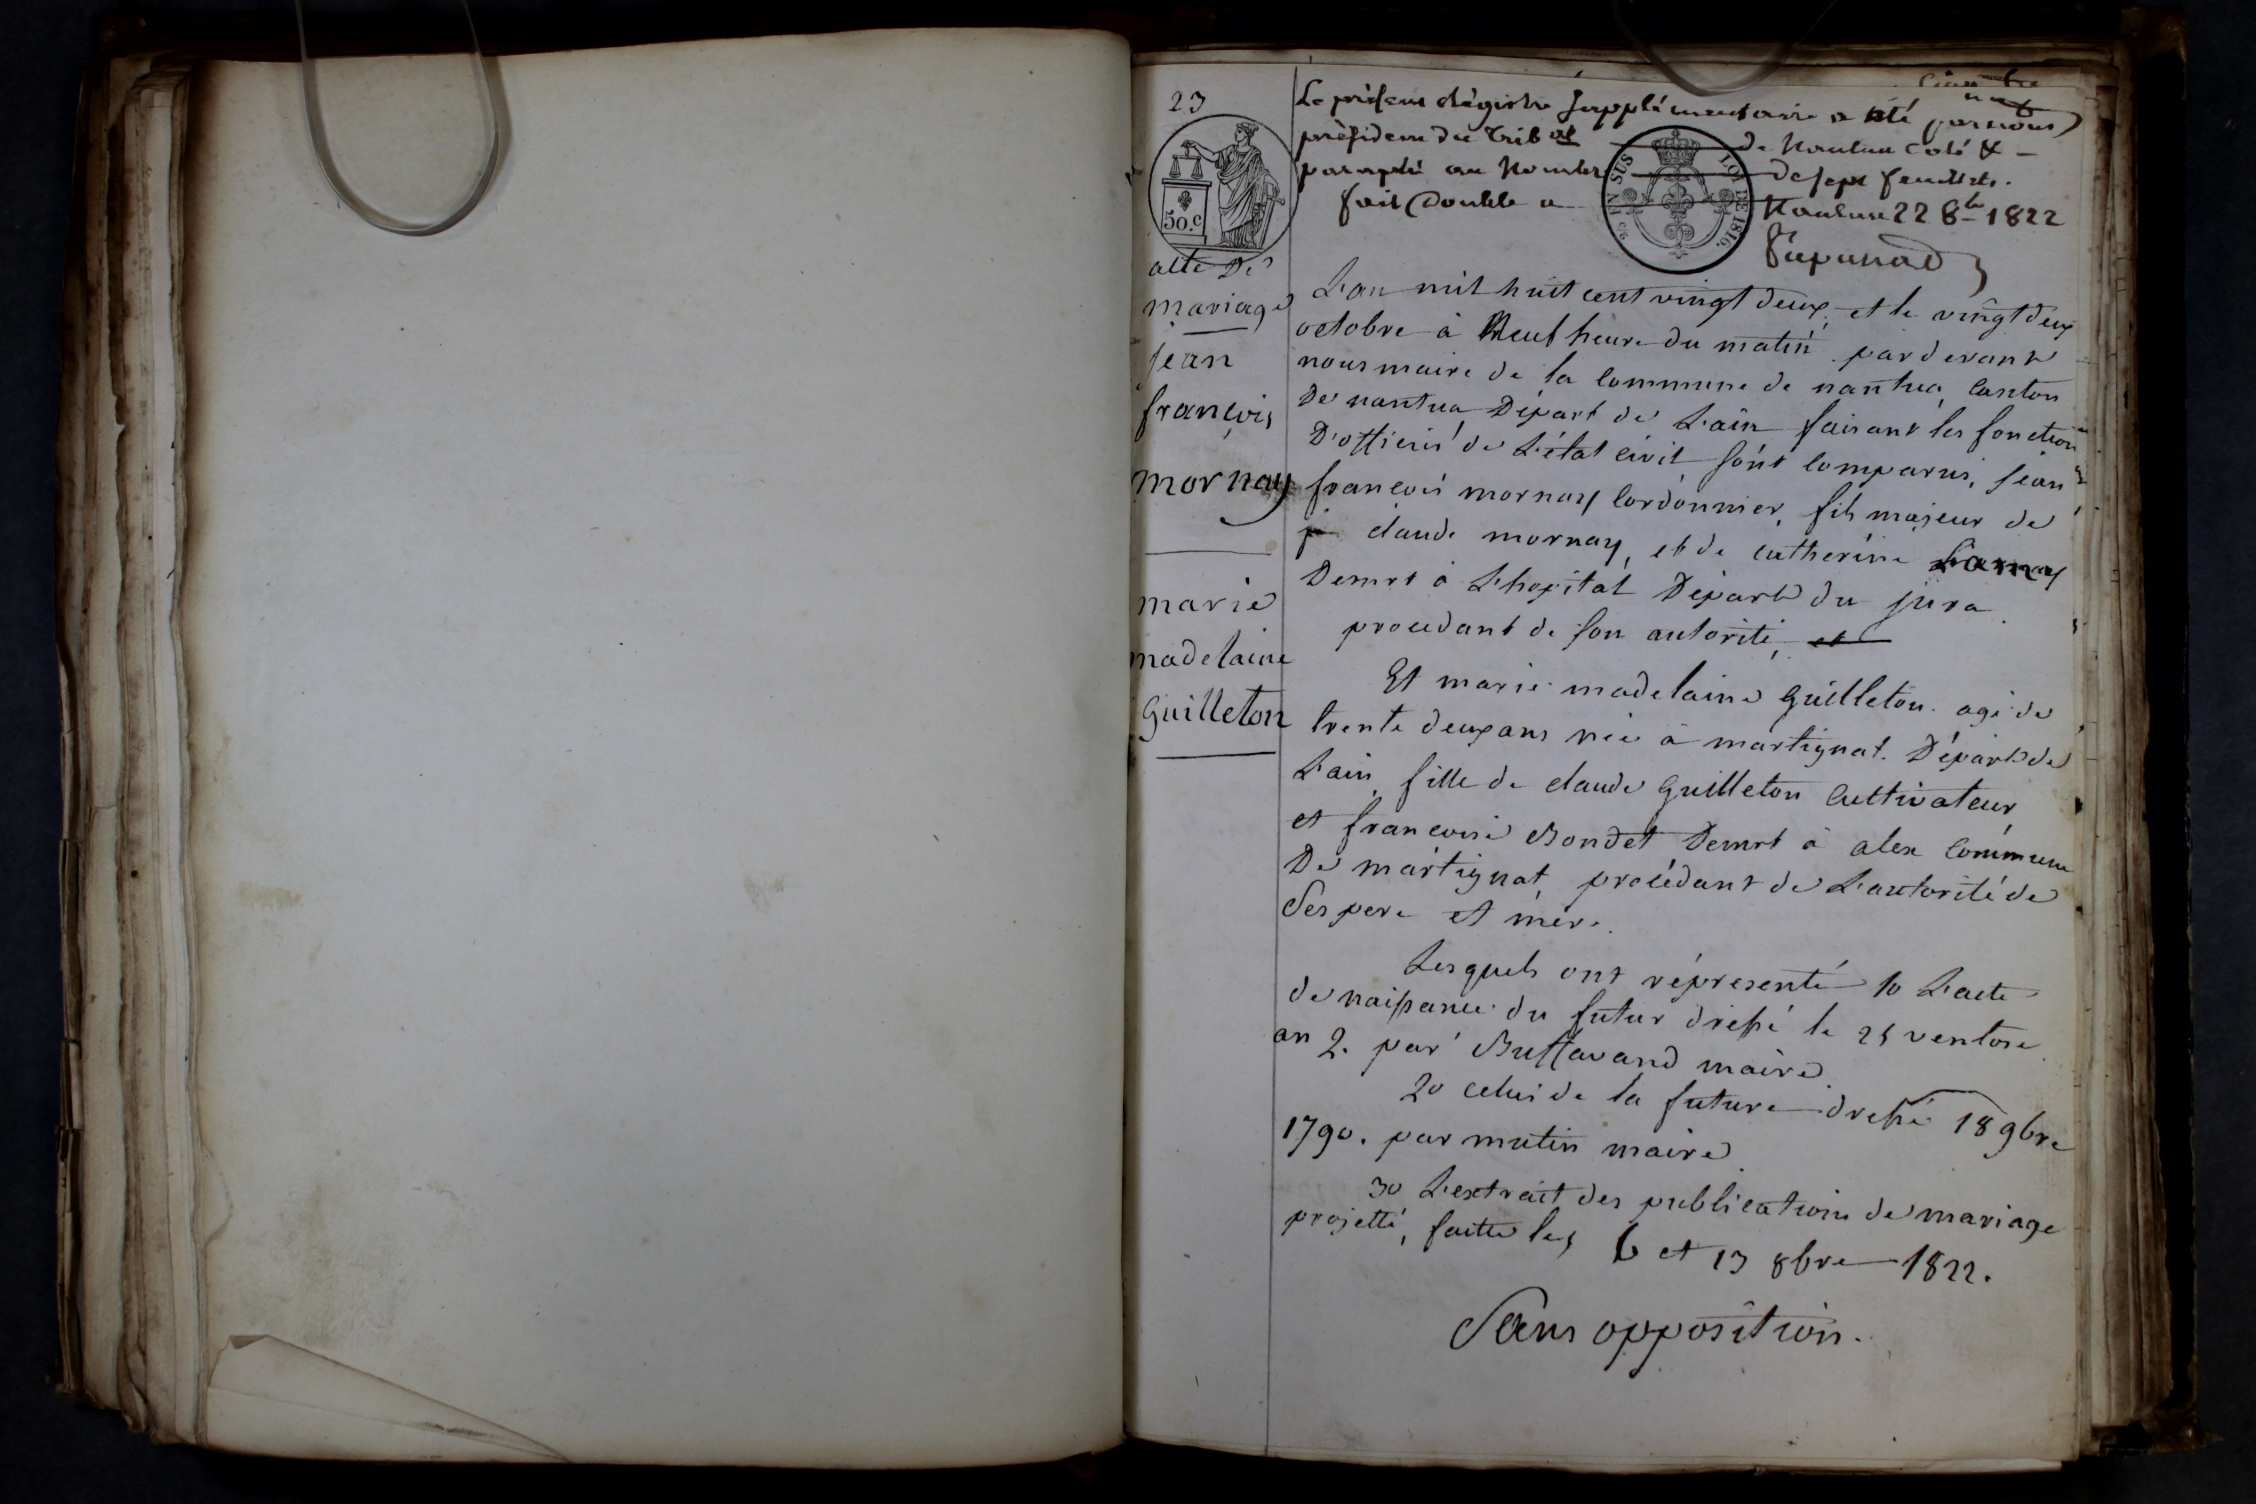 23
Le présent Régistre Supplémentaire a été par nous
président du tribal de Nantua Coté &
paraphé au Nombre de sept feuillets.
fait Double a Nantua 22 8bre 1822
50.c
EN SUS
LOI DE 1816.
acte De
mariage
jean
francois
mornay
marie
madelaine
Guilleton
L'an mil huit cent vingt deux, et le vingt deux
octobre à Neuf heure du matin. par devant
nous maire de la commune de nantua, canton
De nantua Départ de L'ain faisant les fonction
D'officier de L'état civil sont comparus, jean
francois mornay cordonnier, fils majeur de
claude mornay, et de catherine
Demrt à L'hopital Départ du jura
procedant de son autorité, et
Et marie madelaine Guilleton. agé de
trente deux ans née à martignat. Départ de
L'ain, fille de claude Guilleton Cultivateur
et francoise Bondet Demrt à alex Commune
De martignat, procédant de L'autorité de
Ses pere et mere.
Lesquels ont répresenté 1o L'acte
de naissance du futur dressé le 25 ventose
an 2. par Buffavand maire
2o celui de la future dressé 18 9bre
1790. par mutin maire
3o L'extrait des publications de mariage
projetté, faitte les 6 et 13 8bre 1822.
Sans opposition.